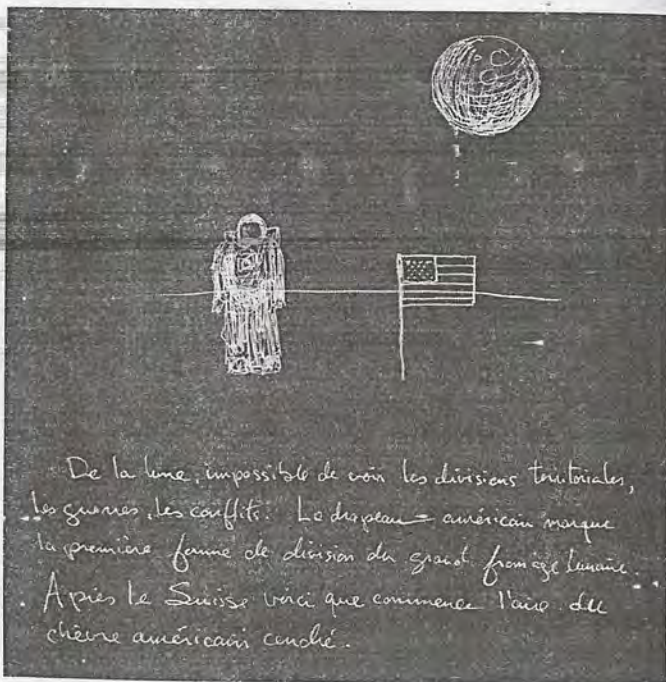 De la lune, impossible de voir les divisions territoriales,
les guerres, les conflits. Le drapeau américain marque
la première forme de division du grand fromage lunaire.
Après le Suisse voici que commence l'aire du
chèvre américain cendré.